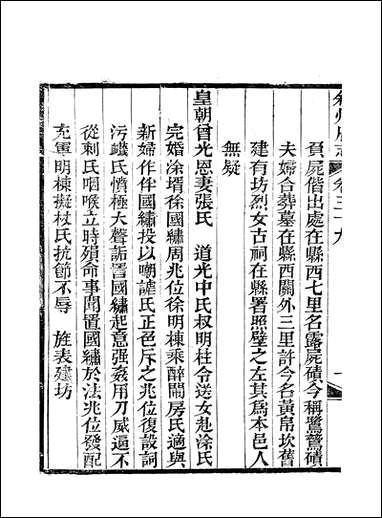 敘州府志 卷三十九
負屍偕出處在縣西七里名露屍磧今稱鷺鷥磧
夫婦合葬墓在縣西關外三里許今名黃帛坎舊
建有坊烈女古祠在縣署照壁之左其為本邑人
無疑
皇朝曾光恩妻張氏 道光中氏叔明柱令送女赴涂氏
完婚涂壻徐國繡周兆位徐明棟乘醉鬧房氏適與
新婦作伴國繡投以嘲謔氏正色斥之兆位復設詞
污衊氏憤極大聲詬詈國繡起意强姦用刀威逼不
從刺氏咽喉立時殞命事聞置國繡於法兆位發配
充軍明棟擬杖氏抗節不辱 旌表建坊